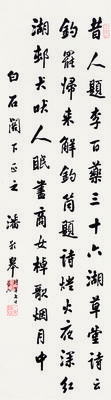 昔人題李百藥三十六湖草堂詩云
釣罷歸來解釣筒題詩燈火夜深紅
湖邨犬吠人眠盡商女棹歌煙月中
白石閣下正之 潘齡皋